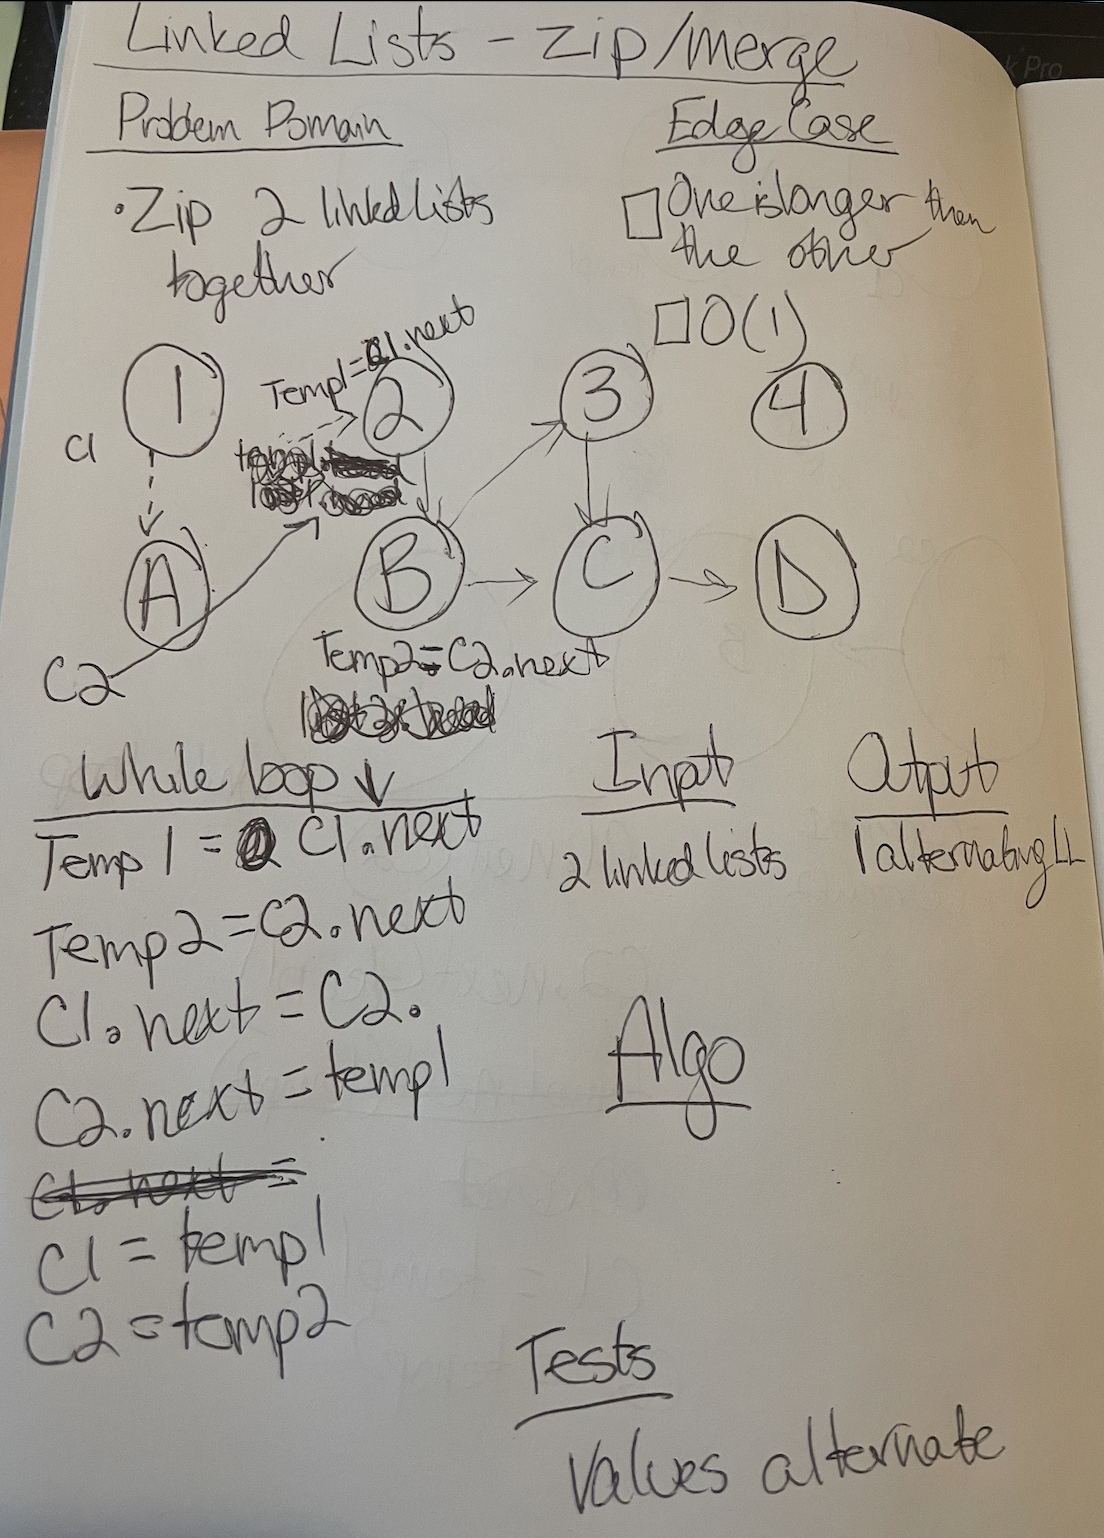 Linked Lists - Zip/merge
Problem Domain
Edge Case
•Zip 2 linked lists
together
One is longer then
the other
O(1)
Temp1=C1.next
1
2
3
4
C1
temp1.
A
B
C
D
C2
Temp2=C2.next
While loop ↓
Temp 1 = C1.next
Temp2=C2.next
C1.next=C2.
C2.next=temp1
C1.next =
C1 = temp1
C2=temp2
Input
2 linked lists
Output
1 alternating LL
Algo
Tests
Values alternate
k Pro